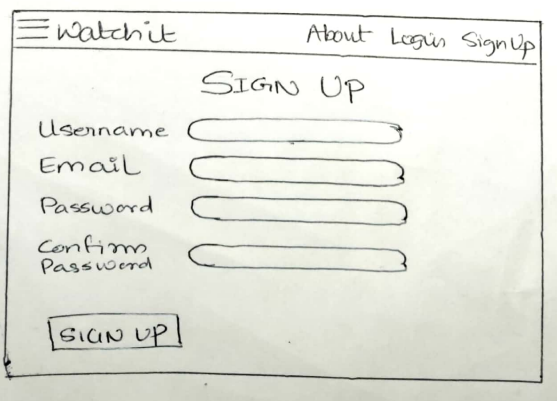 Watchit About Login SignUp
SIGN UP
Username
Email
Password
Confirm
Password
SIGN UP